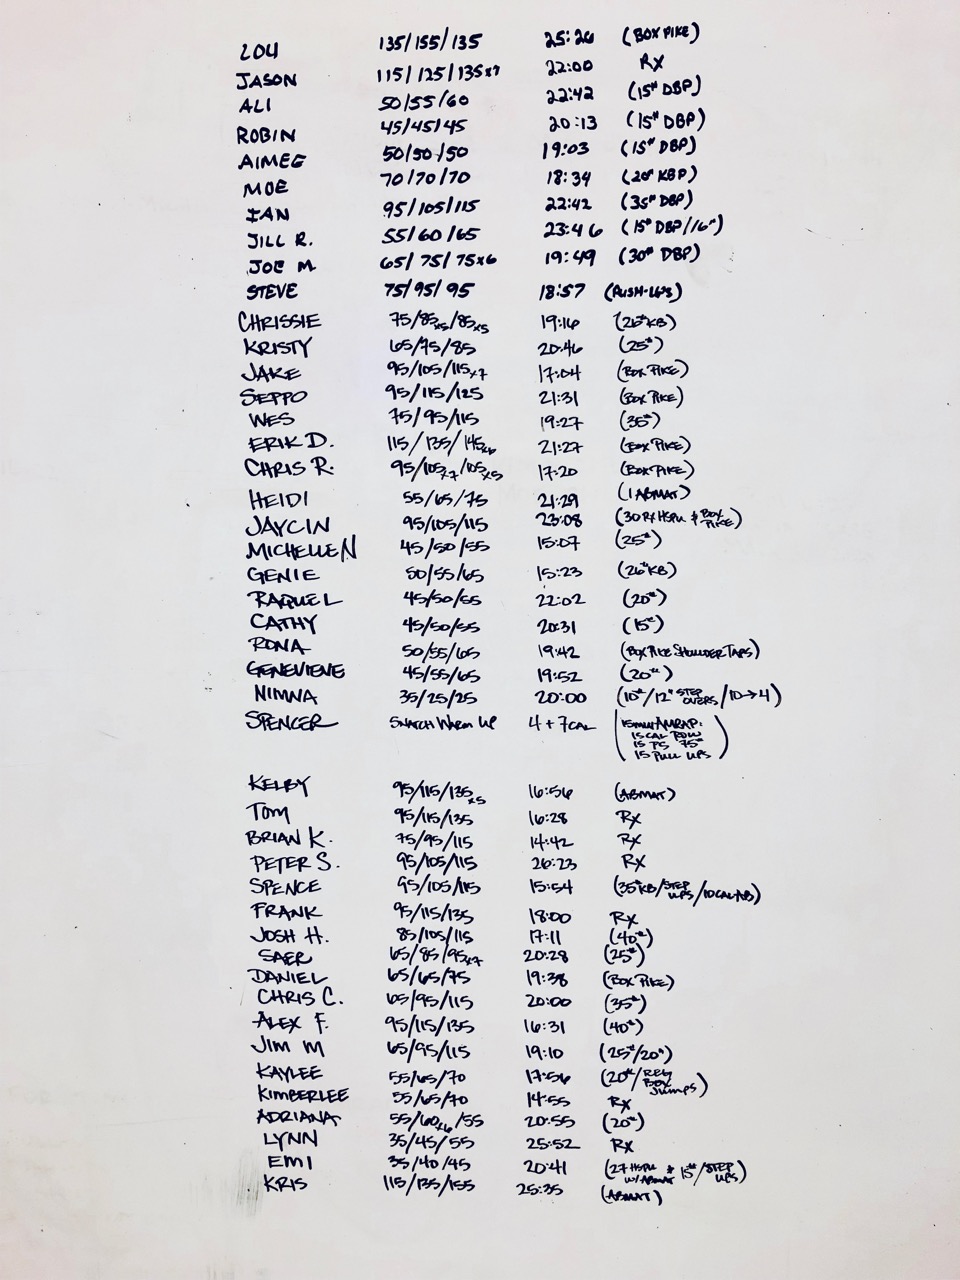 LOU 135/155/135 25:26 (BOX PIKE)
JASON 115/125/135x7 22:00 RX
ALI 50/55/60 22:42 (15# DBP)
ROBIN 45/45/45 20:13 (15# DBP)
AIMEE 50/50/50 19:03 (15# DBP)
MOE 70/70/70 18:34 (20# KBP)
IAN 95/105/115 22:42 (35# DBP)
JILL R. 55/60/65 23:46 (15# DBP//16")
JOE M 65/75/75x6 19:49 (30# DBP)
STEVE 75/95/95 18:57 (PUSH-UPS)
CHRISSIE 75/85x5/85x5 19:16 (26#KB)
KRISTY 65/75/85 20:46 (25#)
JAKE 95/105/115x7 17:04 (BOX PIKE)
SEPPO 95/115/125 21:31 (BOX PIKE)
WES 75/95/115 19:27 (35#)
ERIK D. 115/135/145x6 21:27 (BOX PIKE)
CHRIS R. 95/105x7/105x5 17:20 (BOX PIKE)
HEIDI 55/65/75 21:29 (1 ABMAT)
JAYCIN 95/105/115 23:08 (30 RX HSPU & BOX PIKE)
MICHELLE N 45/50/55 15:07 (25#)
GENIE 50/55/65 15:23 (26#KB)
RAQUEL 45/50/55 22:02 (20#)
CATHY 45/50/55 20:31 (15#)
RONA 50/55/65 19:42 (BOX PIKE SHOULDER TAPS)
GENEVIEVE 45/55/65 19:52 (20#)
NIMNA 35/25/25 20:00 (10#/12" STEP OVERS/10→4)
SPENCER SNATCH WARM UP 4 + 7 CAL (15 MIN AMRAP:
15 CAL ROW
15 PS 75#
15 PULL UPS)
KELBY 95/115/135x5 16:56 (ABMAT)
TOM 95/115/135 16:28 RX
BRIAN K. 75/95/115 14:42 RX
PETER S. 95/105/115 26:23 RX
SPENCE 95/105/115 15:54 (35#KB/STEP UPS/10CAL AB)
FRANK 95/115/135 18:00 RX
JOSH H. 85/105/115 17:11 (40#)
SAER 65/85/95x7 20:28 (25#)
DANIEL 65/65/75 19:38 (BOX PIKE)
CHRIS C. 65/95/115 20:00 (35#)
ALEX F. 95/115/135 16:31 (40#)
JIM M 65/95/115 19:10 (25#/20")
KAYLEE 55/65/70 17:56 (20#/REG BOX JUMPS)
KIMBERLEE 55/65/70 14:55 RX
ADRIANA 55/60x6/55 20:55 (20#)
LYNN 35/45/55 25:52 RX
EMI 35/40/45 20:41 (27 HSPU W/ABMAT & 15#/STEP UPS)
KRIS 115/135/155 25:35 (ABMAT)